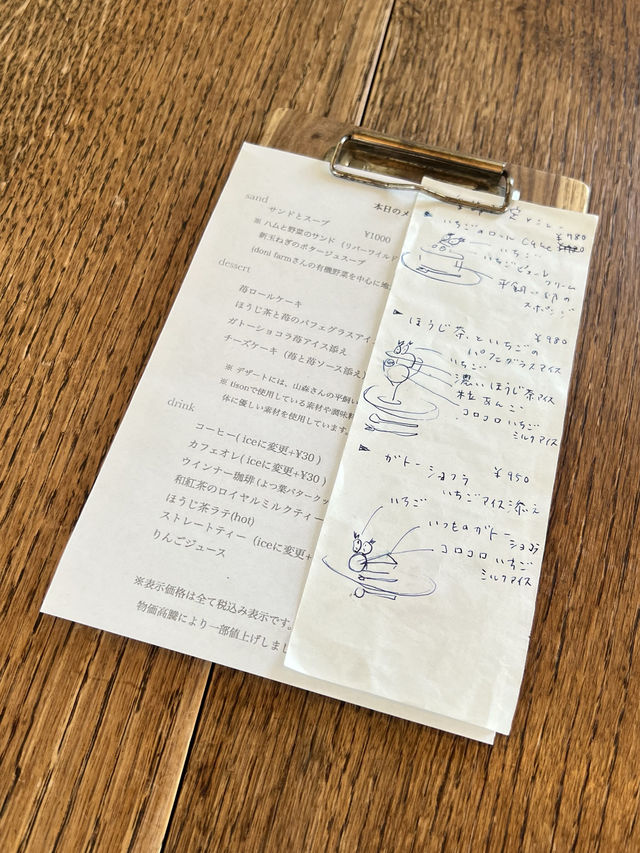 本日のメ
sand
サンドとスープ ¥1000
※ ハムと野菜のサンド (リバーワイルド
新玉ねぎのポタージュスープ
idoni farmさんの有機野菜を中心に地
dessert
苺ロールケーキ
ほうじ茶と苺のパフェグラスアイ
ガトーショコラ苺アイス添え
チーズケーキ (苺と苺ソース添え)
※ デザートには、山森さんの平飼い
※ tisonで使用している素材や調味料
体に優しい素材を使用しています。
drink
コーヒー( iceに変更+¥30 )
カフェオレ( iceに変更+¥30 )
ウインナー珈琲 (よつ葉バタークッ
和紅茶のロイヤルミルクティー
ほうじ茶ラテ(hot)
ストレートティー (iceに変更+
りんごジュース
※表示価格は全て税込み表示です。
物価高騰により一部値上げしまし
いちごのロール Cake ¥980
いちご
いちごピューレ クリーム
平飼い卵の
スポンジ
▶ ほうじ茶.といちごの ¥980
パフェグラスアイス
いちご
濃いほうじ茶アイス
粒あんこ
コロコロいちご
ミルクアイス
▶ ガトーショコラ ¥950
いちごアイス添え
いちご
いつものガトーショコラ
コロコロいちご
ミルクアイス